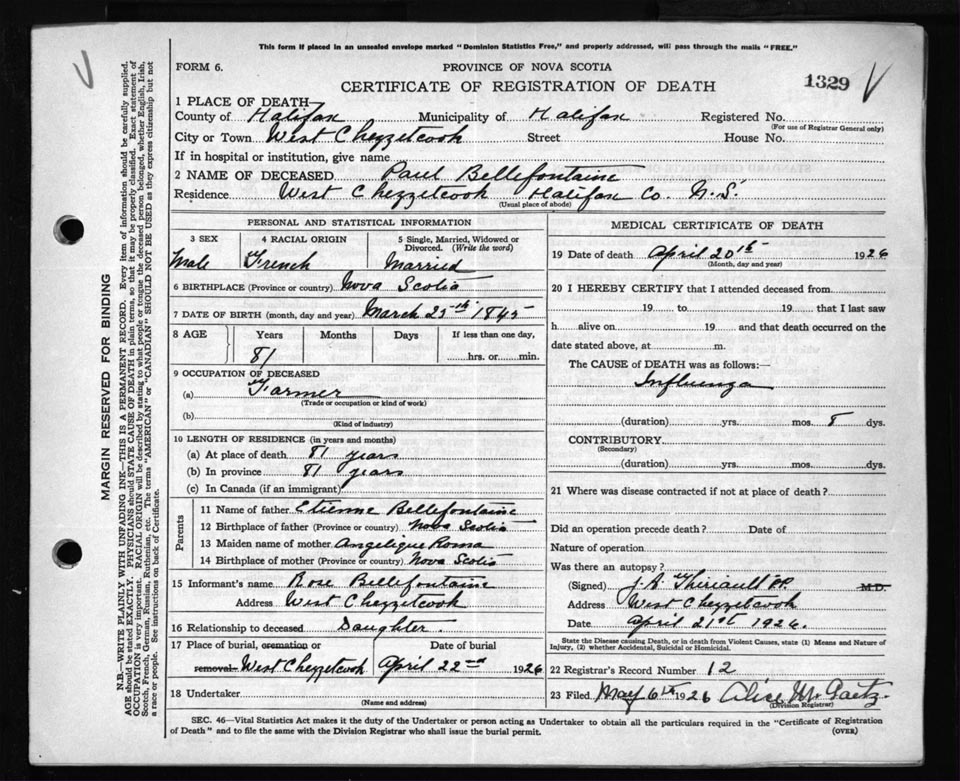 This form if placed in an unsealed envelope marked "Dominion Statistics Free," and properly addressed, will pass through the mails "FREE."
FORM 6.
PROVINCE OF NOVA SCOTIA
CERTIFICATE OF REGISTRATION OF DEATH
1329
1 PLACE OF DEATH
County of Halifax Municipality of Halifax Registered No.
(For use of Registrar General only)
City or Town West Chezzetcook Street House No.
If in hospital or institution, give name
2 NAME OF DECEASED Paul Bellefontaine
Residence West Chezzetcook Halifax Co. N.S.
(Usual place of abode)
PERSONAL AND STATISTICAL INFORMATION
3 SEX 4 RACIAL ORIGIN 5 Single, Married, Widowed or Divorced. (Write the word)
Male French Married
6 BIRTHPLACE (Province or country) Nova Scotia
7 DATE OF BIRTH (month, day and year) March 25th 1845
8 AGE Years Months Days If less than one day,
81 hrs. or min.
9 OCCUPATION OF DECEASED
(a) Farmer
(Trade or occupation or kind of work)
(b)
(Kind of industry)
10 LENGTH OF RESIDENCE (in years and months)
(a) At place of death 81 years
(b) In province 81 years
(c) In Canada (if an immigrant)
Parents
11 Name of father Etienne Bellefontaine
12 Birthplace of father (Province or country) Nova Scotia
13 Maiden name of mother Angelique Roma
14 Birthplace of mother (Province or country) Nova Scotia
15 Informant's name Rose Bellefontaine
Address West Chezzetcook
16 Relationship to deceased Daughter.
17 Place of burial, cremation or Date of burial
removal West Chezzetcook April 22nd 1926
18 Undertaker
(Name and address)
MEDICAL CERTIFICATE OF DEATH
19 Date of death April 20th 1926
(Month, day and year)
20 I HEREBY CERTIFY that I attended deceased from
19 to 19 that I last saw
h alive on 19 and that death occurred on the
date stated above, at m.
The CAUSE of DEATH was as follows:—
Influenza
(duration) yrs. mos. 8 dys.
CONTRIBUTORY
(Secondary)
(duration) yrs. mos. dys.
21 Where was disease contracted if not at place of death?
Did an operation precede death? Date of
Nature of operation
Was there an autopsy?
(Signed) J. A. Theriault P.P. M.D.
Address West Chezzetcook
Date April 21st 1926.
State the Disease causing Death, or in death from Violent Causes, state (1) Means and Nature of
Injury, (2) whether Accidental, Suicidal or Homicidal.
22 Registrar's Record Number 12
23 Filed May 6th 1926 Alice M. Gaetz.
(Division Registrar)
SEC. 46—Vital Statistics Act makes it the duty of the Undertaker or person acting as Undertaker to obtain all the particulars required in the "Certificate of Registration
of Death" and to file the same with the Division Registrar who shall issue the burial permit. (OVER)
MARGIN RESERVED FOR BINDING
N.B.—WRITE PLAINLY WITH UNFADING INK—THIS IS A PERMANENT RECORD. Every item of information should be carefully supplied.
AGE should be stated EXACTLY. PHYSICIANS should STATE CAUSE OF DEATH in plain terms, so that it may be properly classified. Exact statement of
OCCUPATION is very important. RACIAL ORIGIN will be described by stating to what people or tongue the deceased person belonged, whether English, Irish,
Scotch, French, German, Russian, Ruthenian, etc. The terms "AMERICAN" or "CANADIAN" SHOULD NOT BE USED as they express citizenship but not
a race or people. See instructions on back of Certificate.